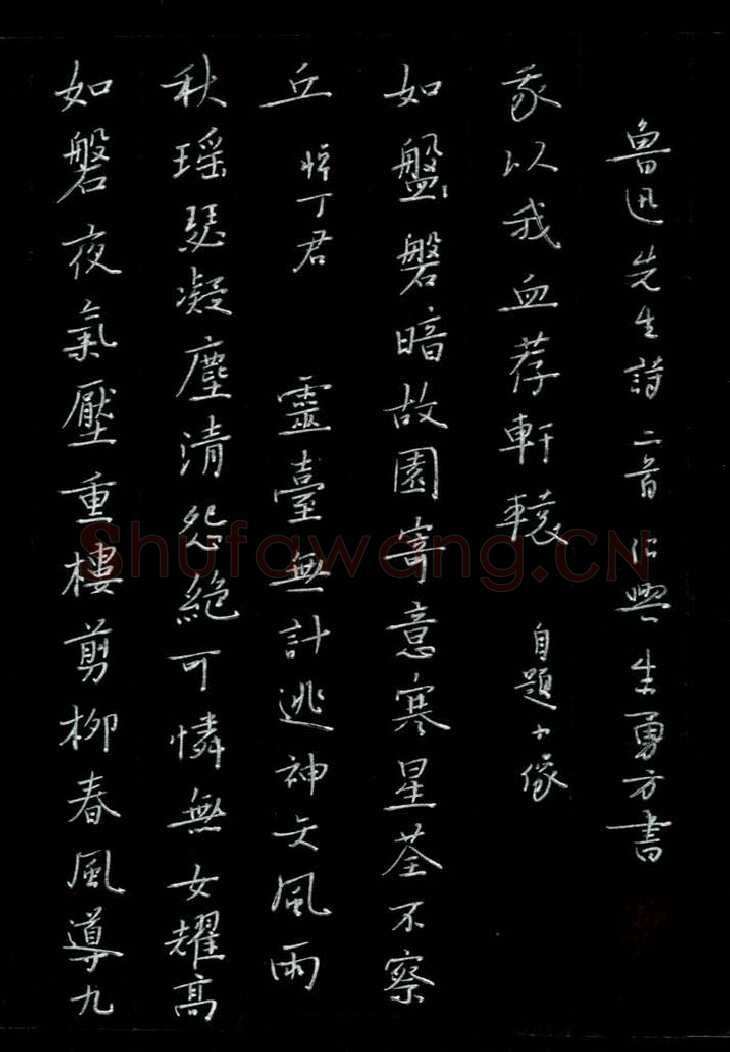 如磐夜氣壓重樓剪柳春風導九
秋瑤瑟凝塵清怨絕可憐無女耀高
丘 悼丁君 靈臺無計逃神矢風雨
如盤磐暗故園寄意寒星荃不察
我以我血荐軒轅 自題小像
魯迅先生詩二首 興朱勇方書
Shufawang.CN